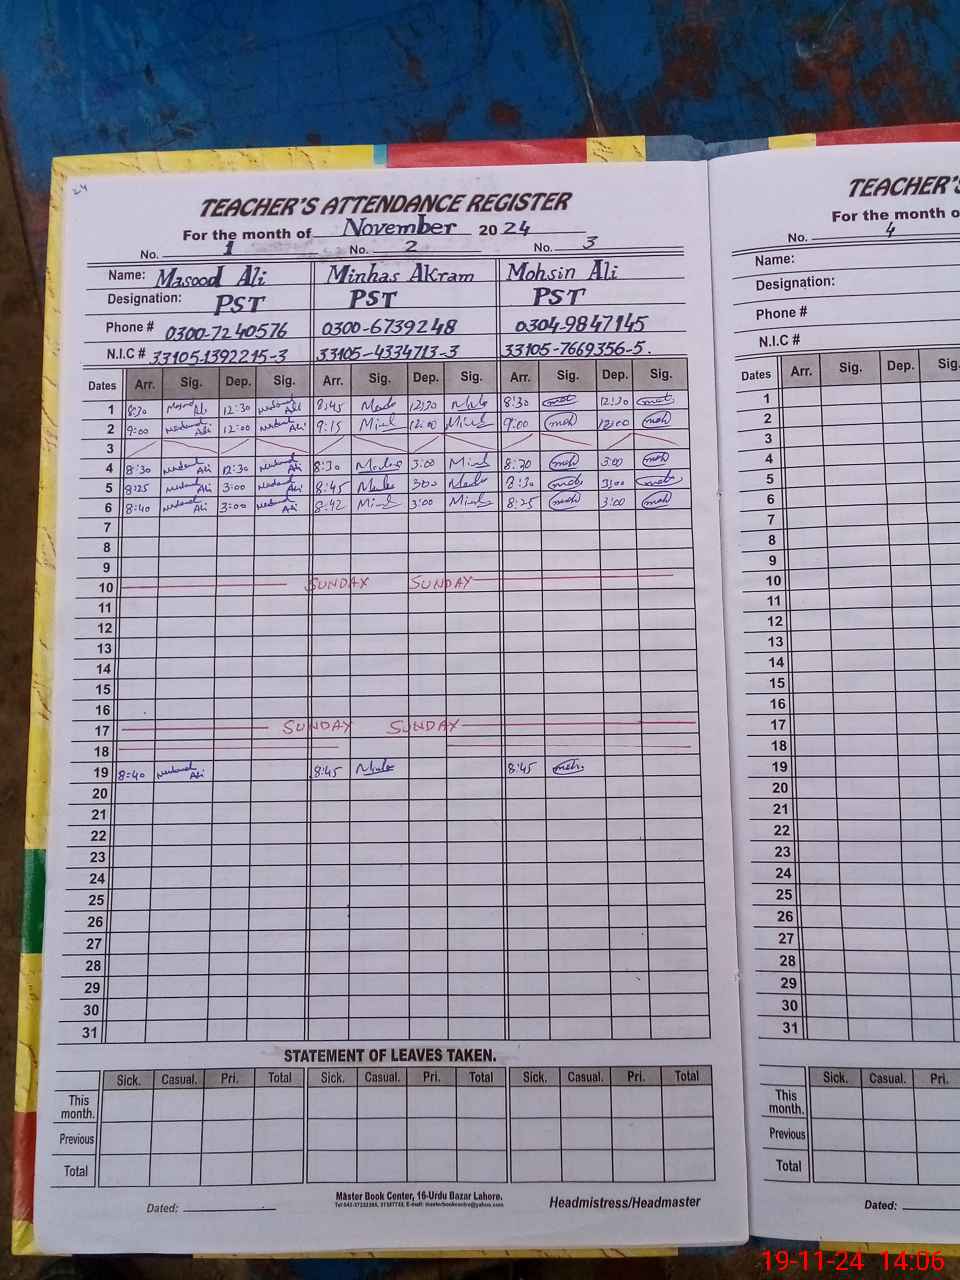 24
TEACHER'S ATTENDANCE REGISTER
For the month of November 2024
No. 1 No. 2 No. 3
Name: Masood Ali Minhas Akram Mohsin Ali
Designation: PST PST PST
Phone # 0300-7240576 0300-6739248 0304-9847145
N.I.C # 33105-1392215-3 33105-4334713-3 33105-7669356-5.
Dates Arr. Sig. Dep. Sig. Arr. Sig. Dep. Sig. Arr. Sig. Dep. Sig.
1 8:30 12:30 8:45 12:30 8:30 12:30
2 9:00 12:00 9:15 12:00 9:00 12:00
3
4 8:30 12:30 8:30 3:00 8:30 3:00
5 8:25 3:00 8:45 3:00 8:30 3:00
6 8:40 3:00 8:42 3:00 8:25 3:00
7
8
9
10 SUNDAY SUNDAY
11
12
13
14
15
16
17 SUNDAY SUNDAY
18
19 8:40 8:45 8:45
20
21
22
23
24
25
26
27
28
29
30
31
STATEMENT OF LEAVES TAKEN.
Sick. Casual. Pri. Total Sick. Casual. Pri. Total Sick. Casual. Pri. Total
This month.
Previous
Total
Dated:
Master Book Center, 16-Urdu Bazar Lahore.
Headmistress/Headmaster
TEACHER'S
For the month o
No. 4
Name:
Designation:
Phone #
N.I.C #
Dates Arr. Sig. Dep. Sig.
1
2
3
4
5
6
7
8
9
10
11
12
13
14
15
16
17
18
19
20
21
22
23
24
25
26
27
28
29
30
31
Sick. Casual. Pri.
This month.
Previous
Total
Dated:
19-11-24 14:06